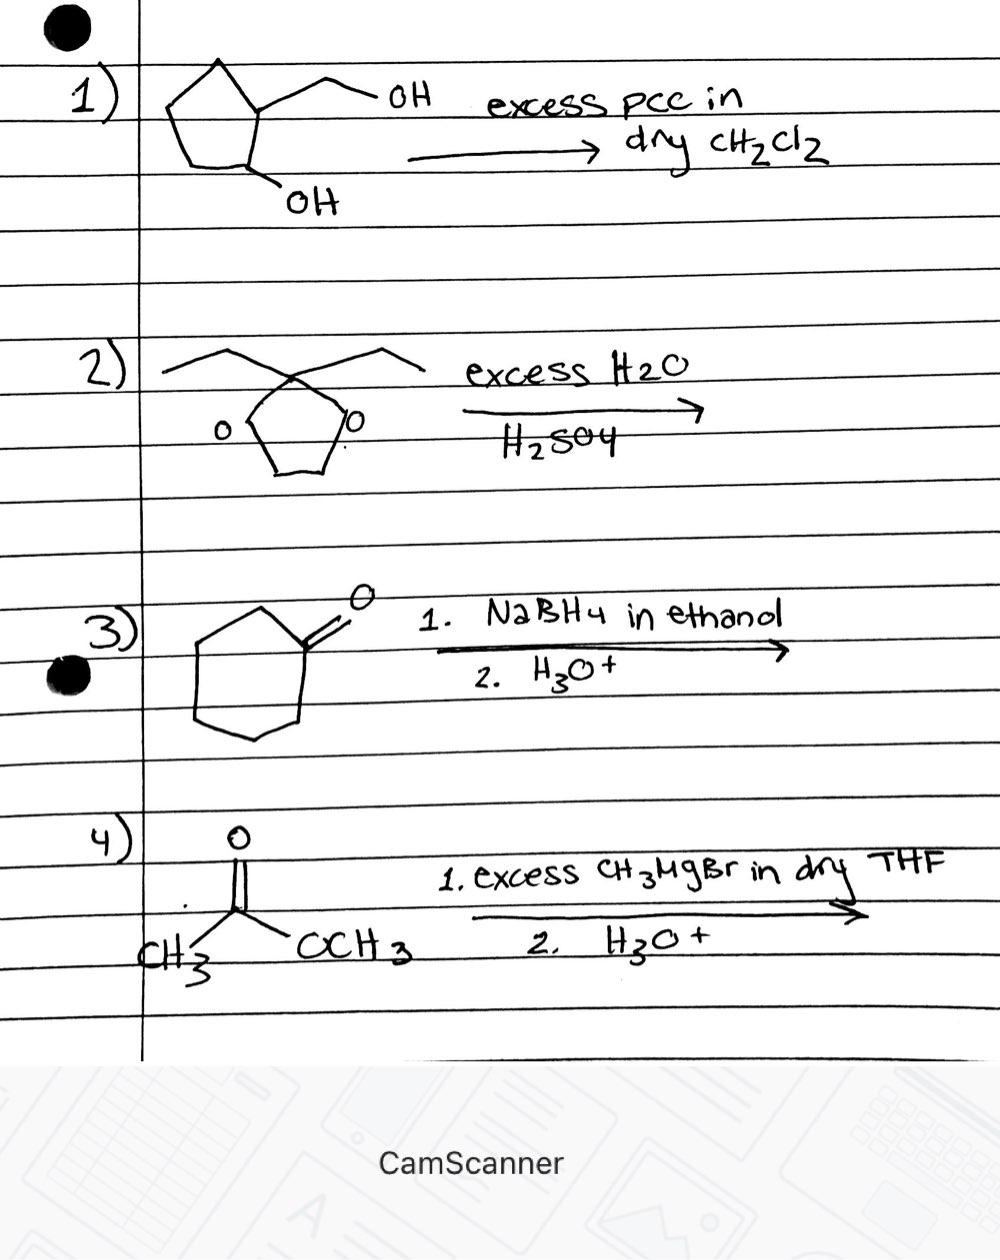 1) OH excess pcc in
dry CH2Cl2
OH
2) excess H2O
O O H2SO4
3) O 1. NaBH4 in ethanol
2. H3O+
4) O
1. excess CH3MgBr in dry THF
CH3 OCH3 2. H3O+
CamScanner